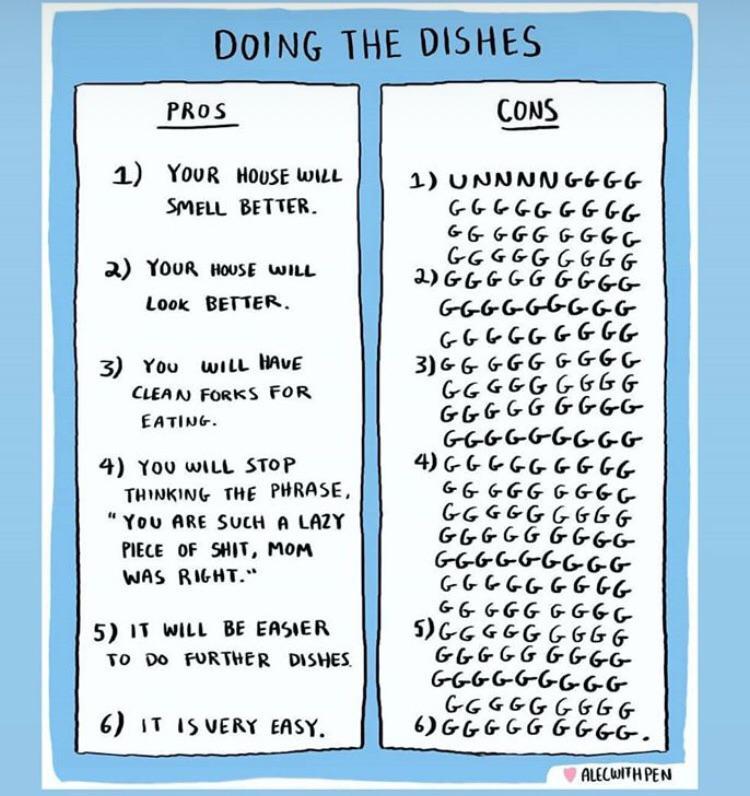 DOING THE DISHES
PROS
1) YOUR HOUSE WILL
SMELL BETTER.
2) YOUR HOUSE WILL
LOOK BETTER.
3) YOU WILL HAVE
CLEAN FORKS FOR
EATING.
4) YOU WILL STOP
THINKING THE PHRASE,
"YOU ARE SUCH A LAZY
PIECE OF SHIT, MOM
WAS RIGHT."
5) IT WILL BE EASIER
TO DO FURTHER DISHES.
6) IT IS VERY EASY.
CONS
1) UNNNNGGGG
GGGGGGGGG
GGGGGGGGG
GGGGGGGGG
2) GGGGGGGGG
GGGGGGGGG
GGGGGGGGG
3) GGGGGGGGG
GGGGGGGGG
GGGGGGGGG
GGGGGGGGG
4) GGGGGGGGG
GGGGGGGGG
GGGGGGGGG
GGGGGGGGG
GGGGGGGGG
GGGGGGGGG
GGGGGGGGG
5) GGGGGGGGG
GGGGGGGGG
GGGGGGGGG
GGGGGGGGG
6) GGGGGGGGG.
ALECWITHPEN